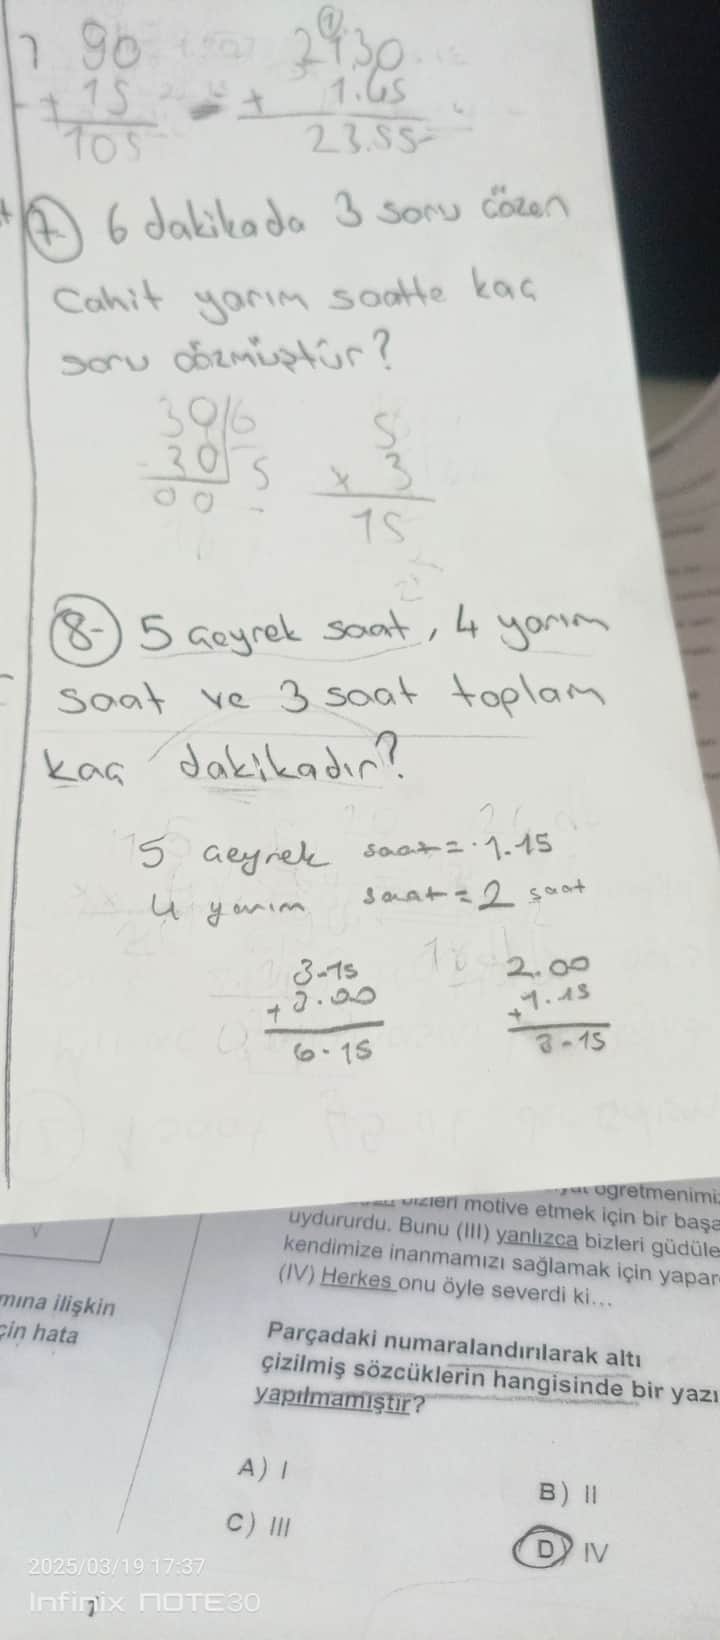 90
+ 15
105
2130
+ 1.45
23.55
7. 6 dakikada 3 soru çözen
Cahit yarım saatte kaç
soru çözmüştür?
30 6
- 30 5
00
5
x 3
15
8- 5 çeyrek saat, 4 yarım
saat ve 3 saat toplam
kaç dakikadır?
5 çeyrek saat = 1.15
4 yarım saat = 2 saat
3.15
+ 3.00
6.15
2.00
+ 1.15
3.15
öğretmenimi
bizleri motive etmek için bir başa
uydururdu. Bunu (III) yanlızca bizleri güdüle
kendimize inanmamızı sağlamak için yapar
(IV) Herkes onu öyle severdi ki...
mına ilişkin
çin hata
Parçadaki numaralandırılarak altı
çizilmiş sözcüklerin hangisinde bir yazı
yapılmamıştır?
A) I
B) II
C) III
D) IV
2025/03/19 17:37
Infinix NOTE30